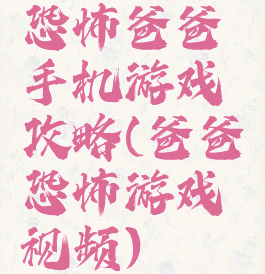 恐怖爸爸
手机游戏
攻略(爸爸
恐怖游戏
视频)